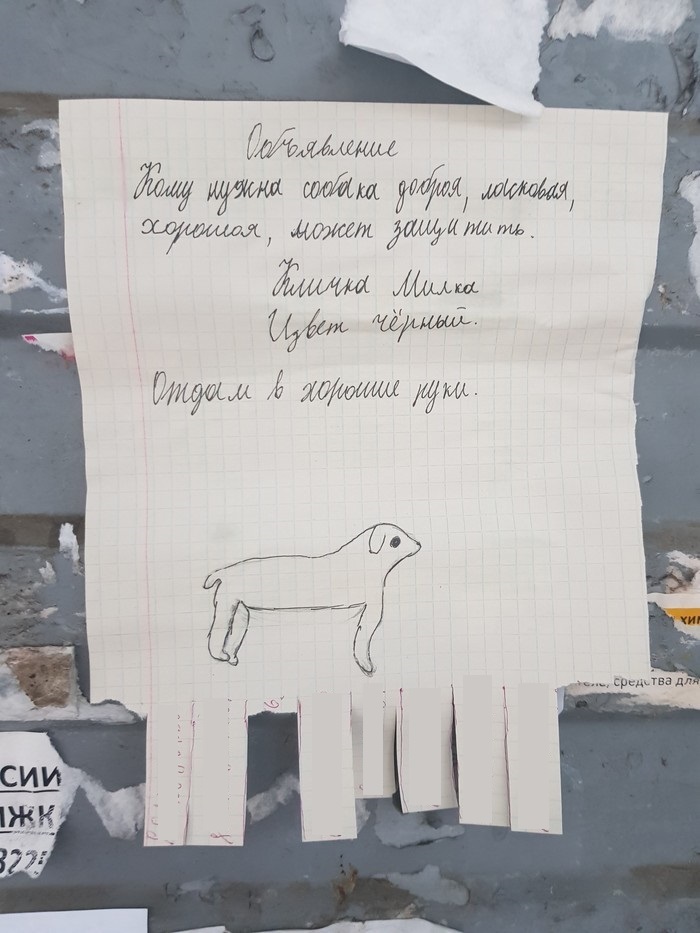 Объявление
Кому нужна собака доброя, ласковая,
хорошая, может защитить.
Кличка Милка
Цвет чёрный.
Отдам в хорошие руки.
хим
средства для
СИИ
ЖК